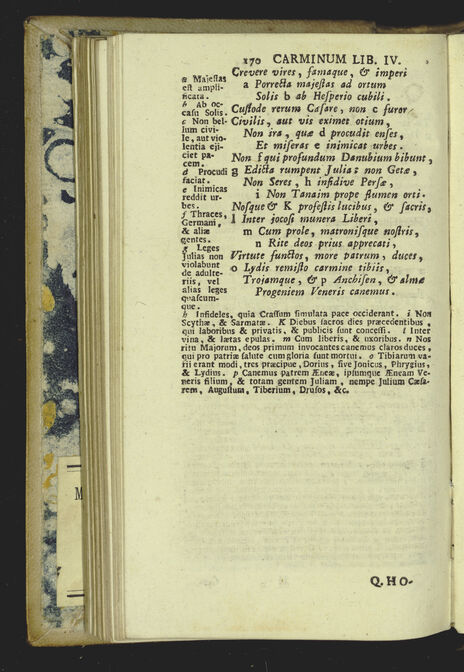 170 CARMINUM LIB. IV.
Crevere vires, famaque, & imperi
a Porrecta majestas ad ortum
Solis b ab Hesperio cubili.
Custode rerum Cæsare, non c furor
Civilis, aut vis eximet otium,
Non ira, quæ d procudit enses,
Et miseras e inimicat urbes.
Non f qui profundum Danubium bibunt,
g Edicta rumpent Julia: non Getæ,
Non Seres, h infidive Persæ,
i Non Tanaim prope flumen orti.
Nosque & K profestis lucibus, & sacris,
l Inter jocosi munera Liberi,
m Cum prole, matronisque nostris,
n Rite deos prius apprecati,
Virtute functos, more patrum, duces,
o Lydis remisto carmine tibiis,
Trojamque, & p Anchisen, & almæ
Progeniem Veneris canemus.
a Majestas
est ampli-
ficata.
b Ab oc-
casu Solis.
c Non bel-
lum civi-
le, aut vio-
lentia eji-
ciet pa-
cem.
d Procudi
faciat.
e Inimicas
reddit ur-
bes.
f Thraces,
Germani,
& aliæ
gentes.
g Leges
Julias non
violabunt
de adulte-
riis, vel
alias leges
quascum-
que.
h Infideles, quia Crassum simulata pace occiderant. i Non
Scythæ, & Sarmatæ. K Diebus sacros dies præcedentibus,
qui laboribus & privatis, & publicis sunt concessi. l Inter
vina, & lætas epulas. m Cum liberis, & uxoribus. n Nos
ritu Majorum, deos primum invocantes canemus claros duces,
qui pro patriæ salute cum gloria sunt mortui. o Tibiarum va-
rii erant modi, tres præcipue, Dorius, sive Jonicus, Phrygius,
& Lydius. p Canemus patrem Æneæ, ipsumque Æneam Ve-
neris filium, & totam gentem Juliam, nempe Julium Cæsa-
rem, Augustum, Tiberium, Drusos, &c.
Q. HO-
M